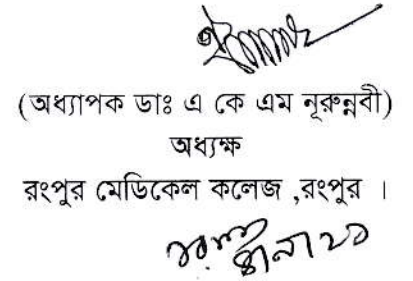 (অধ্যাপক ডাঃ এ কে এম নূরুন্নবী)
অধ্যক্ষ
রংপুর মেডিকেল কলেজ ,রংপুর ।